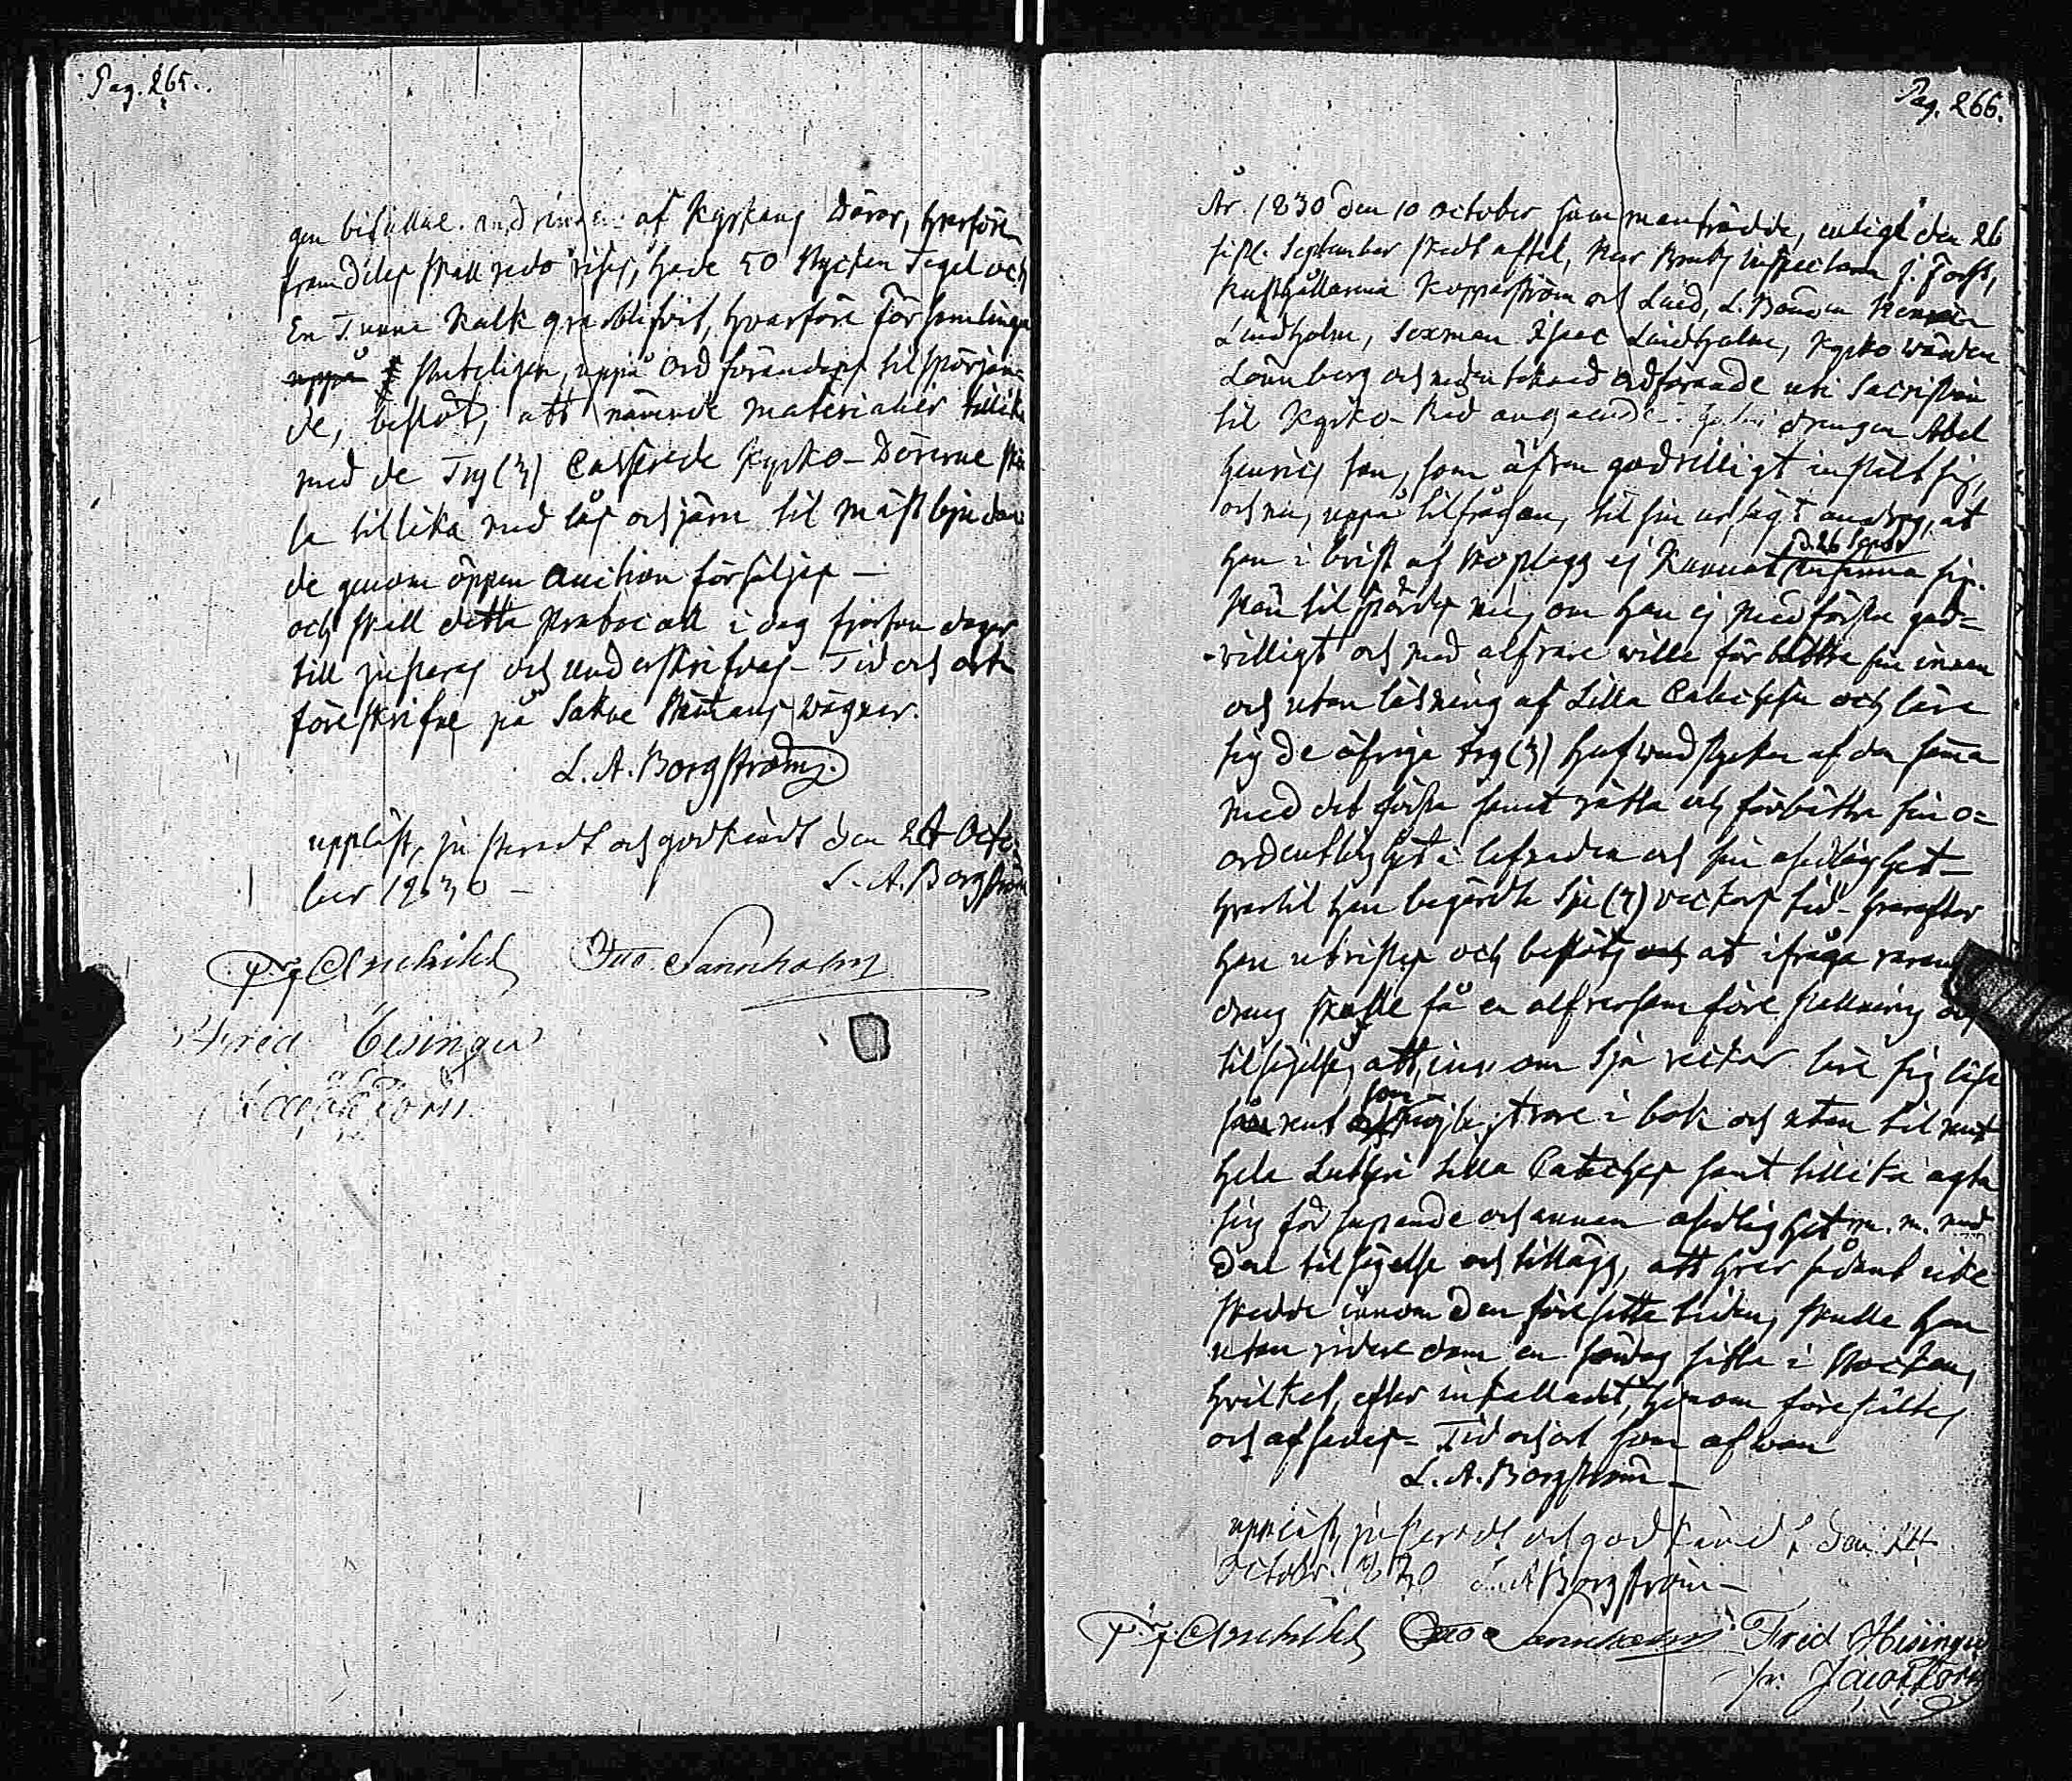 Pag. 265.
gen af Kyrkans Dörar, hvarföre
framdeles skall redovises, hade 50 stycken Tegel och
En Tunna Kalk qvarblifvit, hvarföre församlingen
uppå sluteligen, uppå Ordförandens tilspörjan-
de, beslöt, att nämnde materialier tillika
med de Try (3) Casserade Kyrko-Dörerne
la tillika med lås och järn til mästbjudan
de genom öppen auction försäljes —
och skall detta protocoll i dag fjorton dagar
till justeras och underskrifvas. Tid och ort
föreskrifne på Sakne Stämans wägnar.
L. A. Borgström.
uppläst, justeradt och godkändt den 24 Octo-
ber 1830 — L. A. Borgström
Otto Sannholm
Fred Hisinger
Jacob Forss
Pag. 266.
År 1830 den 10 October sammanträdde, enligt den 26
sistl. September skedt aftal, Herr Bruks inspectoren J. Forss,
Rusthållarna Kopparström och Lind, L. Bonden
Lindholm, Sexman Isaac Lindholm, Kyrko wärden
Lönnberg och undertecknad ordförande uti Sacristian
til Kyrko-Råd angående drengen Abel
Henrics son, som äfven godvilligt instält sig,
och nu, uppå tilfrågan, til sin ursägt androg, at
d. 26 Sept.
han i brist af skoplagg ej kunnat infinna sig.
Man tilspörde nu, om han ej med första god-
villigt och med alfvare wille förbättra sin innan
och utan läsning af Lilla Catechesen och lära
sig de öfriga try (3) hufwudstycken af den samma
med det första samt rätta och förbättra sin o-
ordentlighet i lefnaden och sin osedlighet —
hvartil han begärdte Sju (7) veckors tid — hvarefter
han utvistes och beslöts och at ifråga varan
dreng skulle få en alfversam föreställning och
tilsägelse, att, innom sju veckor lära sig läsa
som
rent möjligt vore i bok och utan til samt
hela Lutheri lilla Cateches samt tillika agta
sig för supande och annan osedlighet m. m. med
den tilsägelse och tillägg, att hvar sådant icke
skedde innom den föresatta tiden, skulle han
utan vidare dom en söndag sitta i Stocken,
hvilket, efter inkalladt, honom föreställtes
och afsades. Tid och ort som ofwan
L. A. Borgström —
uppläst, justeradt och godkändt den 24
October 1830 L. A. Borgström —
Otto Sannholm Fred Hisinger
Jacob Forss